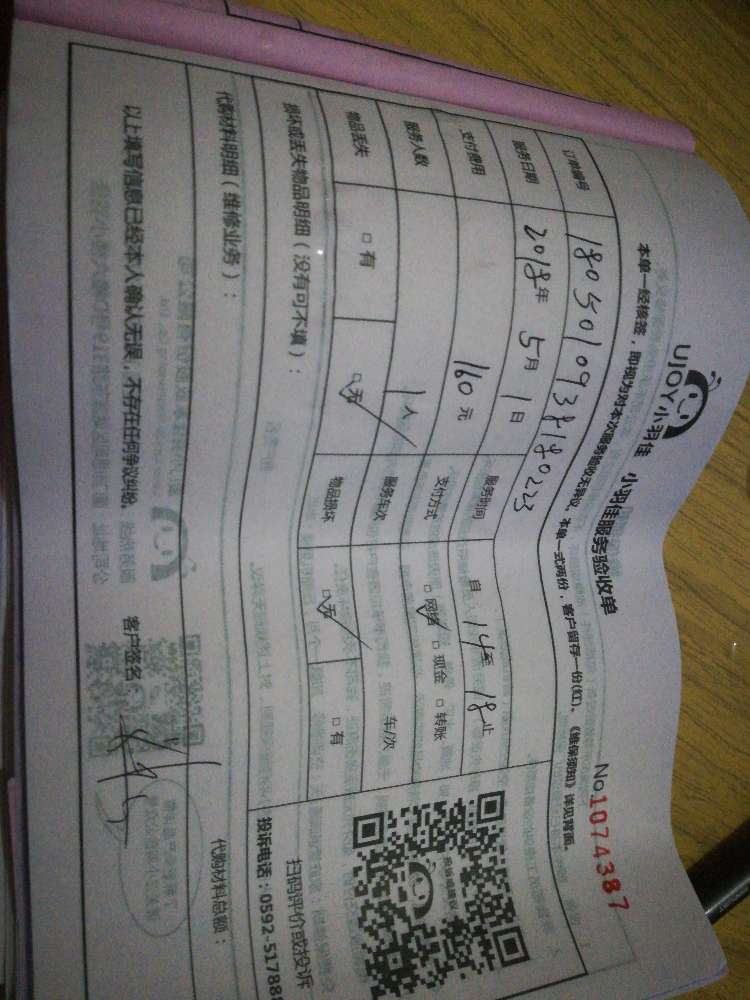 UJOY小羽佳 小羽佳服务验收单
No.1074387
本单一经核签，即视为对本次服务验收无异议。本单一式两份，客户留存一份(红)、《维保须知》详见背面。
订单编号 1805010938180223
服务日期 2018年 5月 1日 服务时间 自 14至 18止
支付费用 160元 支付方式 ☑网络 □现金 □转账
服务人数 1人 服务车次 车/次
物品丢失 □有 ☑无 物品损坏 ☑无 □有
损坏或丢失物品明细（没有可不填）：
代购材料明细（维修业务）： 代购材料总额：
以上填写信息已经本人确认无误，不存在任何争议纠纷。 客户签名
扫码评价或投诉
投诉电话：0592-51788